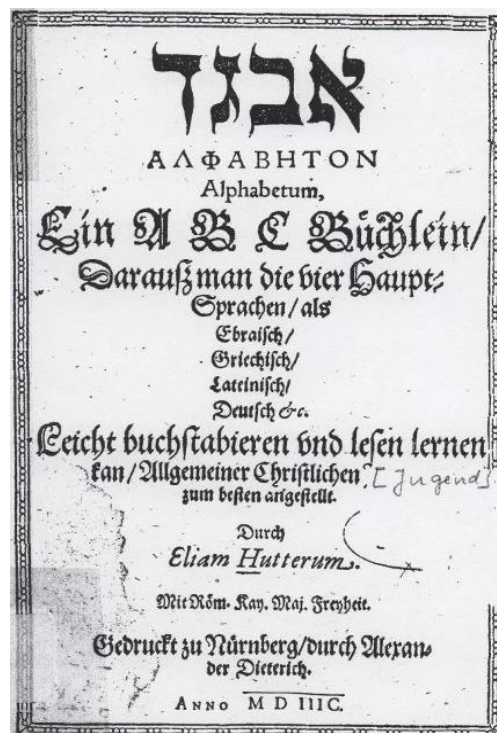 אבגד
ΑΛΦΑΒΗΤΟΝ
Alphabetum,
Ein A B C Bůchlein/
Darauß man die vier Haupt⸗
Sprachen/als
Ebraisch/
Griechisch/
Lateinisch/
Deutsch &c.
Leicht buchstabieren vnd lesen lernen
kan/Allgemeiner Christlichen [Jugend]
zum besten angestellt.
Durch
Eliam Hutterum.
Mit Röm. Kay. Maj. Freyheit.
Gedruckt zu Nürnberg/durch Alexan⸗
der Dieterich.
ANNO M D IIIC.